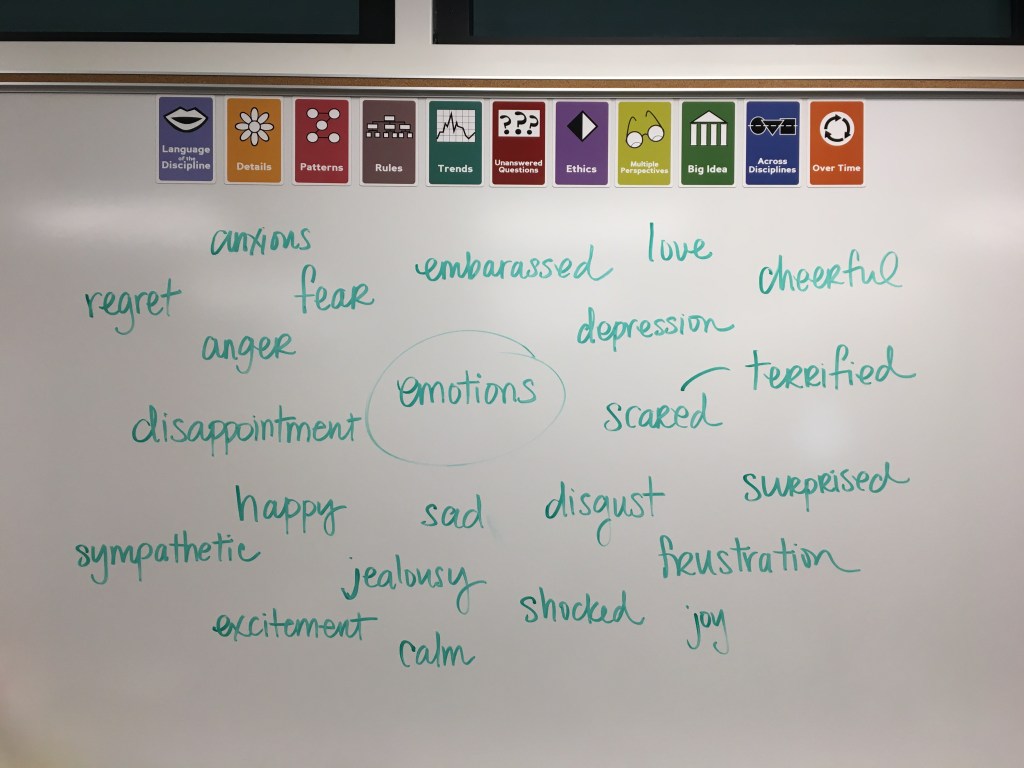 Language
of the
Discipline
Details
Patterns
Rules
Trends
???
Unanswered
Questions
Ethics
Multiple
Perspectives
Big Idea
Across
Disciplines
Over Time
anxious
embarassed
love
cheerful
regret
fear
depression
anger
emotions
terrified
scared
disappointment
happy
sad
disgust
surprised
sympathetic
jealousy
frustration
excitement
shocked
joy
calm